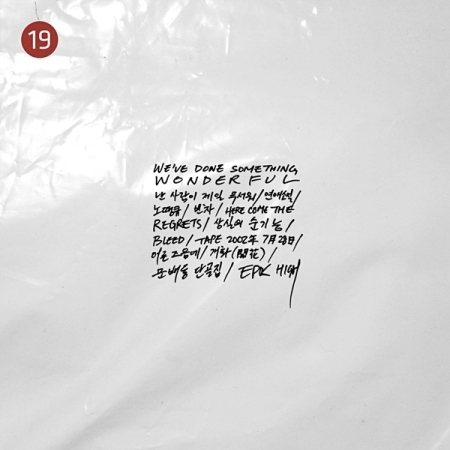 19
WE'VE DONE SOMETHING
WONDERFUL
난 사람이 제일 무서워/연애소설/
노땡큐/빈차/HERE COME THE
REGRETS/상실의 순기능/
BLEED/TAPE 2002年 7月 28日/
개화(開花)/
문배동 단골집/EPIK HIGH